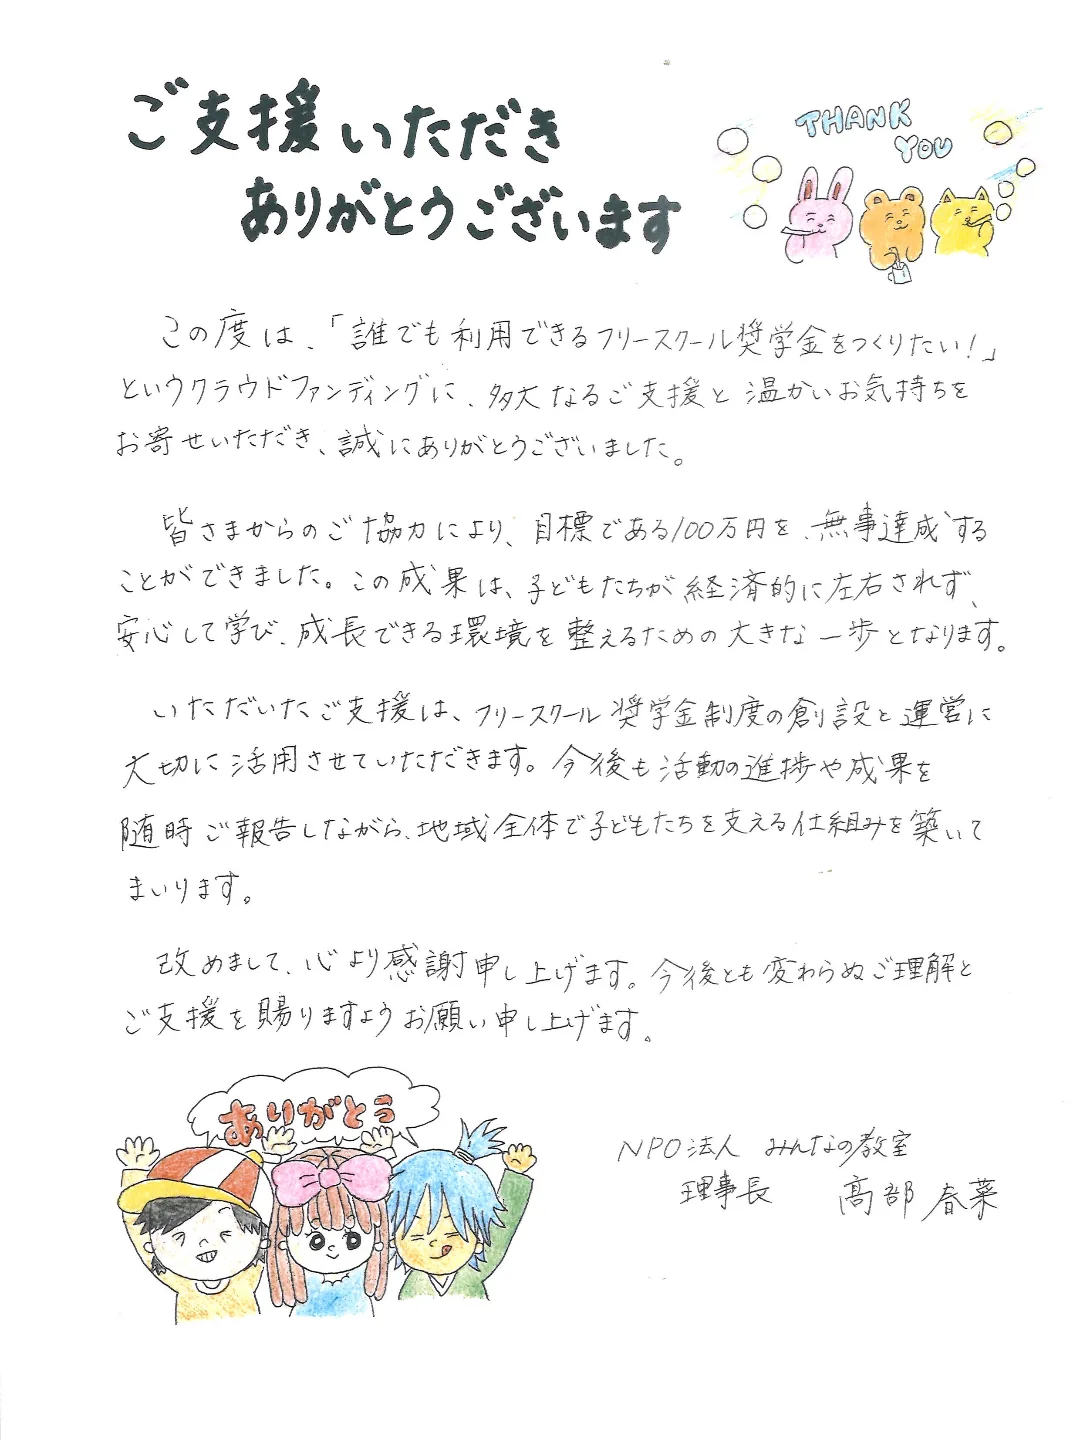 ご支援いただき
ありがとうございます
THANK
YOU
この度は、「誰でも利用できるフリースクール奨学金をつくりたい！」
というクラウドファンディングに、多大なるご支援と温かいお気持ちを
お寄せいただき、誠にありがとうございました。
皆さまからのご協力により、目標である100万円を、無事達成する
ことができました。この成果は、子どもたちが経済的に左右されず、
安心して学び、成長できる環境を整えるための大きな一歩となります。
いただいたご支援は、フリースクール奨学金制度の創設と運営に
大切に活用させていただきます。今後も活動の進捗や成果を
随時ご報告しながら、地域全体で子どもたちを支える仕組みを築いて
まいります。
改めまして、心より感謝申し上げます。今後とも変わらぬご理解と
ご支援を賜りますようお願い申し上げます。
ありがとう
NPO法人 みんなの教室
理事長 髙部 春菜